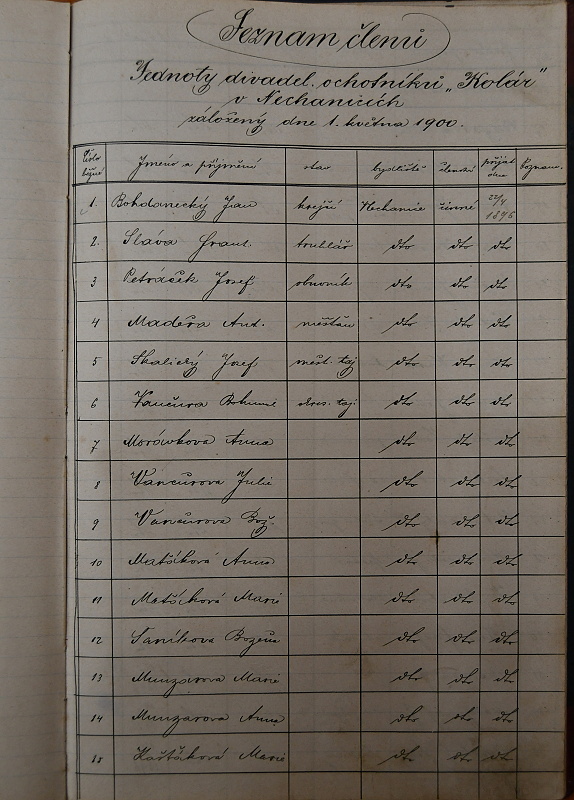 Seznam členů
Jednoty divadel. ochotníků „Kolár"
v Nechanicích
záložený dne 1. května 1900.
Číslo běžné Jméno a příjmění stav bydliště členství přijat dne Poznam.
1. Bohdanecký Jan krejčí Nechanic činné 22/4 1896
2. Sláva Frant. truhlář dto dto dto
3 Petráček Josef obuvník dto dto dto
4 Maděra Ant. měšťan dto dto dto
5 Skalický Josef měst. taj dto dto dto
6 Vančura Bohumil okres. taj. dto dto dto
7 Morávkova Anna dto dto dto
8 Vančurova Julie dto dto dto
9 Vančurova Bož. dto dto dto
10 Matěáková Anna dto dto dto
11 Marie dto dto dto
12 Saníkova Božena dto dto dto
13 Munzarova Marie dto dto dto
14 Munzarova Anna dto dto dto
15 Marie dto dto dto